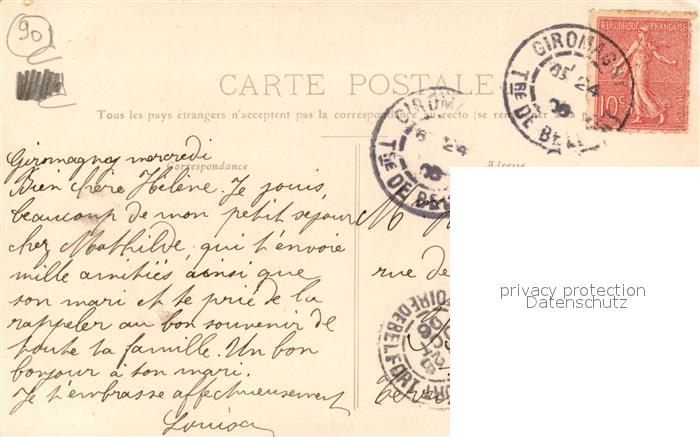 90
RÉPUBLIQUE FRANÇAISE
10c
GIROMAGNY
24
Tre DE BELFORT
CARTE POSTALE
GIROM
24
Tre DE BEL
Tous les pays étrangers n'acceptent pas la correspondance au recto (se ren
Correspondance
Adresse
Giromagny mercredi
Bien chère Hélène. Je jouis
beaucoup de mon petit séjour
chez Mathilde, qui t'envoie
mille amitiés ainsi que
son mari et te prie de la
rappeler au bon souvenir de
toute ta famille. Un bon
bonjour à ton mari.
Je t'embrasse affectueusement
Louisa
M
rue de
TOIRE DE BELFORT
privacy protection
Datenschutz